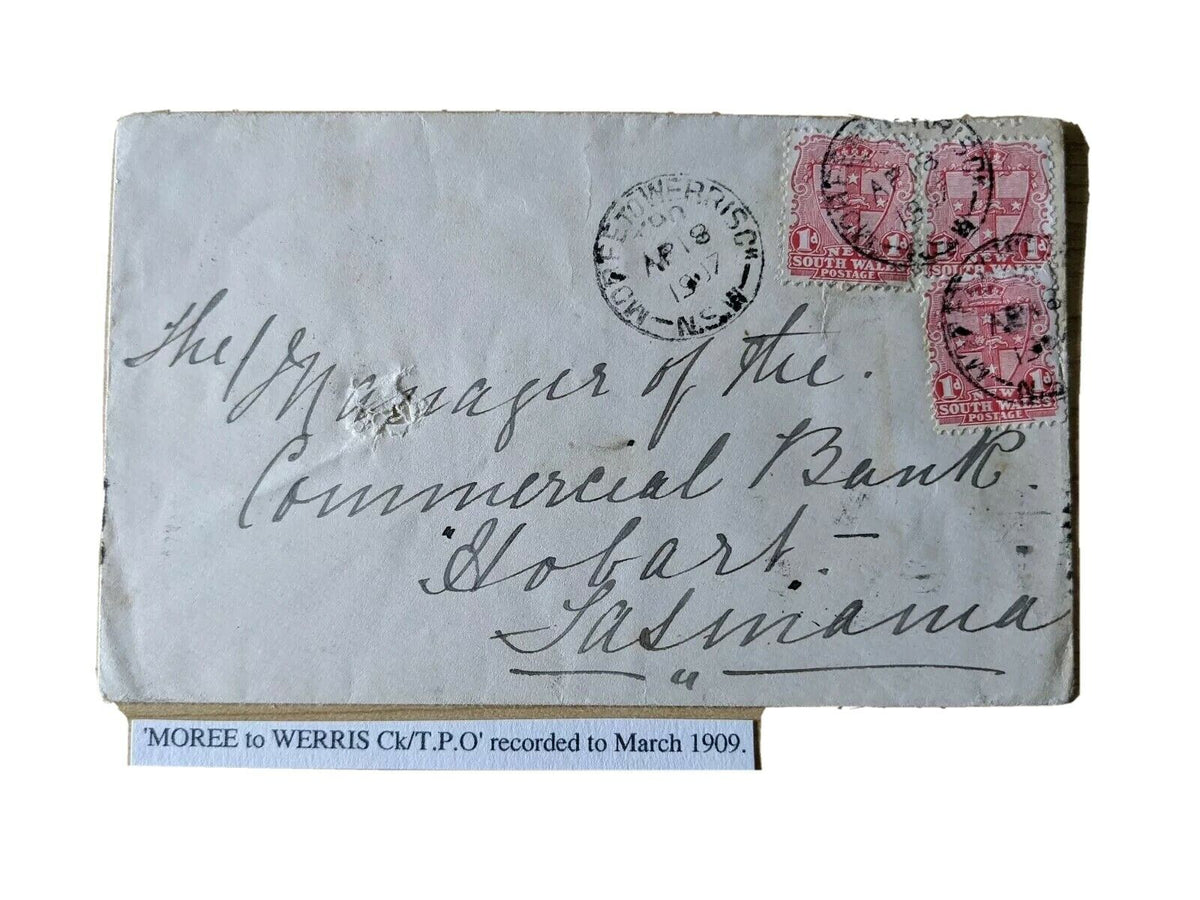 MOREE TO WERRIS CK
T.P.O
AP 18
1907
N.S.W
1d 1d
NEW
SOUTH WALES
POSTAGE
1d 1d
NEW
SOUTH WALES
POSTAGE
1d 1d
NEW
SOUTH WALES
POSTAGE
The Manager of the.
Commercial Bank.
"Hobart. –
Tasmania
"
'MOREE to WERRIS Ck/T.P.O' recorded to March 1909.